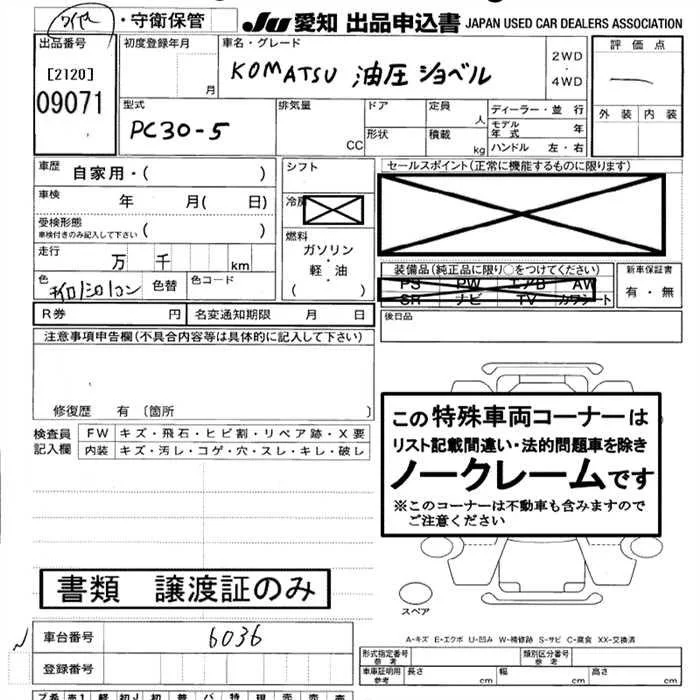 ・守衛保管
JU 愛知 出品申込書 JAPAN USED CAR DEALERS ASSOCIATION
出品番号
[2120]
09071
初度登録年月
月
車名・グレード
KOMATSU 油圧ショベル
2WD
・
4WD
評価点
外装 内装
型式
PC30-5
排気量
CC
ドア
形状
定員
人
積載
kg
ディーラー・並行
モデル年式 年
ハンドル 左・右
車歴
自家用・( )
車検
年 月( 日)
受検形態
車検付きのみ記入して下さい ( )
走行
万 千 km
色
色替
色コード
シフト
冷房
燃料
ガソリン
・
軽・油
( )
セールスポイント(正常に機能するものに限ります)
装備品(純正品に限り○をつけてください)
PS PW エアB AW
SR ナビ TV カワシート
新車保証書
有・無
後日品
R券 円
名変通知期限 月 日
注意事項申告欄(不具合内容等は具体的に記入して下さい)
修復歴 有〔箇所 〕
検査員
記入欄
FW キズ・飛石・ヒビ割・リペア跡・X要
内装 キズ・汚レ・コゲ・穴・スレ・キレ・破レ
この特殊車両コーナーは
リスト記載間違い・法的問題車を除き
ノークレームです
※このコーナーは不動車も含みますので
ご注意ください
書類 譲渡証のみ
スペア
車台番号 6036
登録番号
A-キズ E-エクボ U-凹み W-補修跡 S-サビ C-腐食 XX-交換済
形式指定番号
参考
類別区分番号
参考
車庫証明用
参考
長さ cm
幅 cm
高さ cm